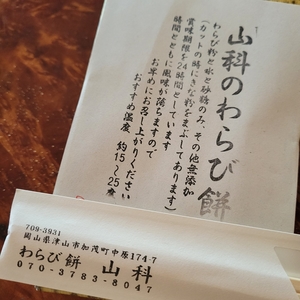 山科のわらび餅
わらび粉と水と砂糖のみ、その他無添加
(カットの時にきな粉をまぶしてあります)
賞味期限を24時間としています
時間とともに風味が落ちますので
お早めにお召し上がりください
おすすめ温度 約15～25度
709-3931
岡山県津山市加茂町中原174-7
わらび餅 山科
070-3783-8047